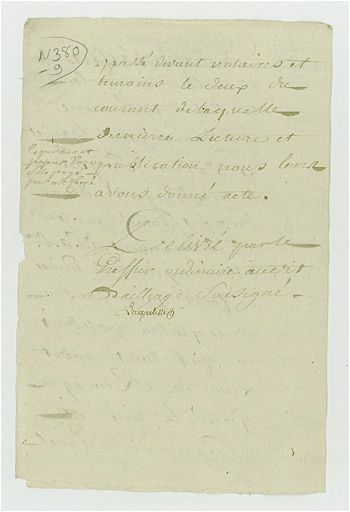 N 380
9
passé devant notaires et
temoins le deux du
courant de laquelle
derniere Lecture et
publication nous leurs
avons donné acte.
Delivré par le
Greffier ordinaire audit
Bailliage Sousigné.